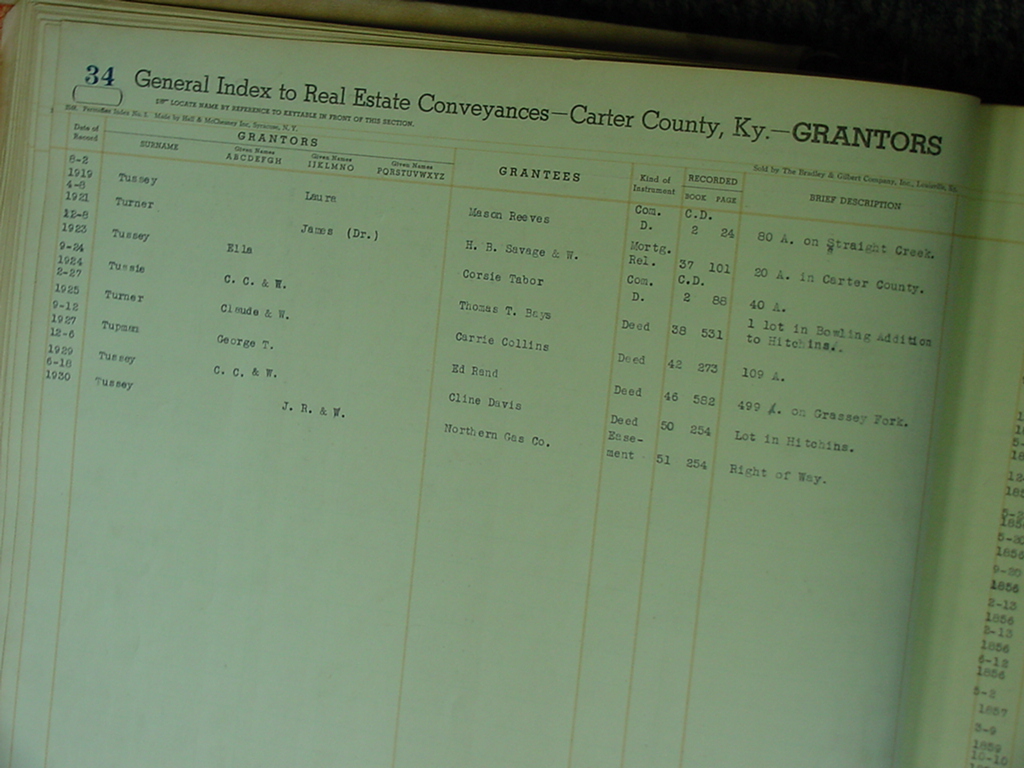 34 General Index to Real Estate Conveyances—Carter County, Ky.—GRANTORS
LOCATE NAME BY REFERENCE TO KEYTABLE IN FRONT OF THIS SECTION.
Index No. 1. Made by Hall & McChesney Inc. Syracuse, N. Y.
Sold by The Bradley & Gilbert Company, Inc., Louisville, Ky.
Date of Record GRANTORS GRANTEES Kind of Instrument RECORDED BRIEF DESCRIPTION
SURNAME Given Names ABCDEFGH Given Names IJKLMNO Given Names PQRSTUVWXYZ BOOK PAGE
8-2 1919 Tussey Laura Mason Reeves Com. D. C.D. 2 24 80 A. on Straight Creek.
4-8 1921 Turner James (Dr.) H. B. Savage & W. Mortg. Rel. 37 101 20 A. in Carter County.
12-8 1923 Tussey Ella Corsie Tabor Com. D. C.D. 2 88 40 A.
9-24 1924 Tussie C. C. & W. Thomas T. Bays Deed 38 531 1 lot in Bowling Addition to Hitchins.
2-27 1925 Turner Claude & W. Carrie Collins Deed 42 273 109 A.
9-12 1927 Tupman George T. Ed Rand Deed 46 582 499 A. on Grassey Fork.
12-6 1929 Tussey C. C. & W. Cline Davis Deed 50 254 Lot in Hitchins.
6-18 1930 Tussey J. R. & W. Northern Gas Co. Ease-ment 51 254 Right of Way.
5-20
1856
9-20
1856
2-13
1856
2-13
1856
6-12
1856
5-2
1857
3-9
1859
10-10